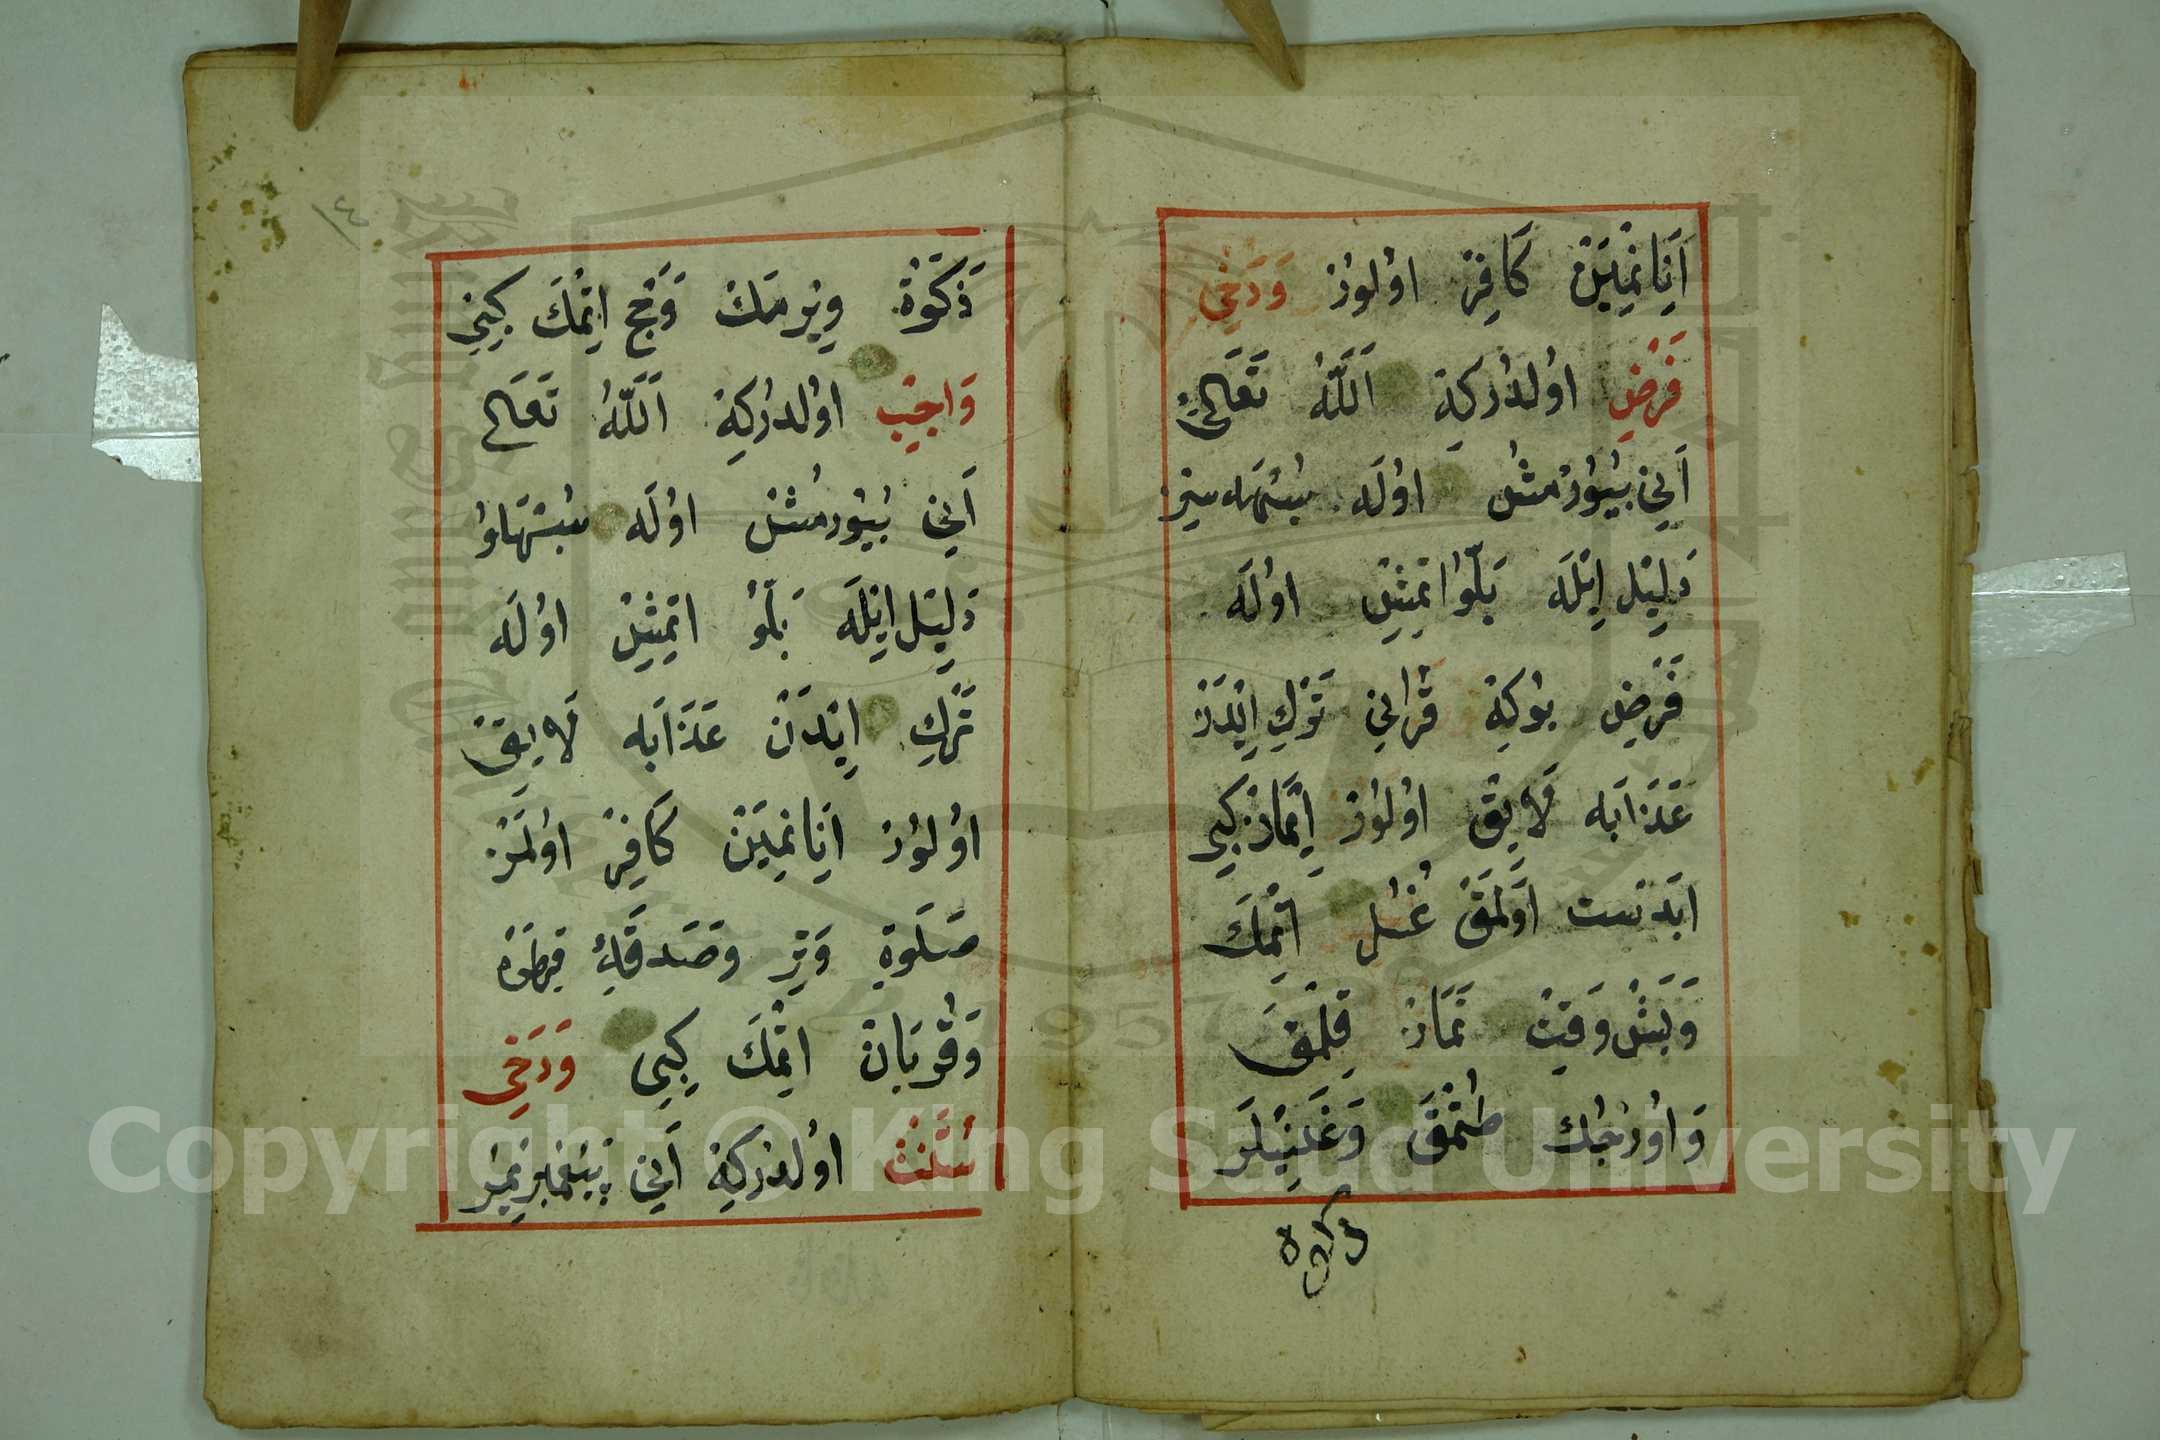 اَنَا نْمِيَنْ كَافِرْ اوُلوُرْ وَدَخِى
فَرْضِ اوُلدُرْكِهْ اَللّٰهُ تَعَالٰى
اَنِى بُيُورْمُشْ اوُلَه شُبْهَه سِزْ
دَلِيْل اِيْلَه بَلّوُ اتْمِشْ اوُلَه
فَرْضِ بوُكِهْ قُرْانِى تَرْكِ اِيْدَنْ
عَذَابَه لَايِقْ اوُلوُرْ اِيمَانْ كِبِى
ابَدَسْت اَوَلْمَقْ غُسُل اتْمِكَ
وَبَشْ وَقِتْ نَمَازْ قِلْمَقْ
وَاوُرُجُكْ طُتْمَقْ وَغَنِيْلَرَ
ذكوة
ذَكَوةْ وِيْرمَكْ وَحَجِ اتْمِكَ كِبِى
وَاجِبْ اوُلدُرْكِهْ اَللّٰهُ تَعَالٰى
اَنِى بُيُورمُشْ اوُلَه شُبْهَالوُ
دَلِيْل اِيْلَه بَلّوُ اتْمِشْ اوُلَه
تَرْكِ اِيْدَنْ عَذَابَه لَايِقْ
اوُلوُرْ اَنَا نْمِيَنْ كَافِرْ اوُلمَزْ
صَلَوةِ وَتِرِ وَصَدَقَهِٔ فِطَرَهْ
وَقُوْبَانْ اتْمِكَ كِبِى وَدَخِى
سُنَّتْ اوُلدُرْكِهْ اَنِى پَيْغَمْبَرِيْمِزْ
١٤
Copyright © King Saud University
1957